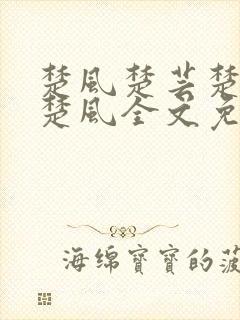 楚風楚芸楚
楚風全文免
海绵寶寶的菠